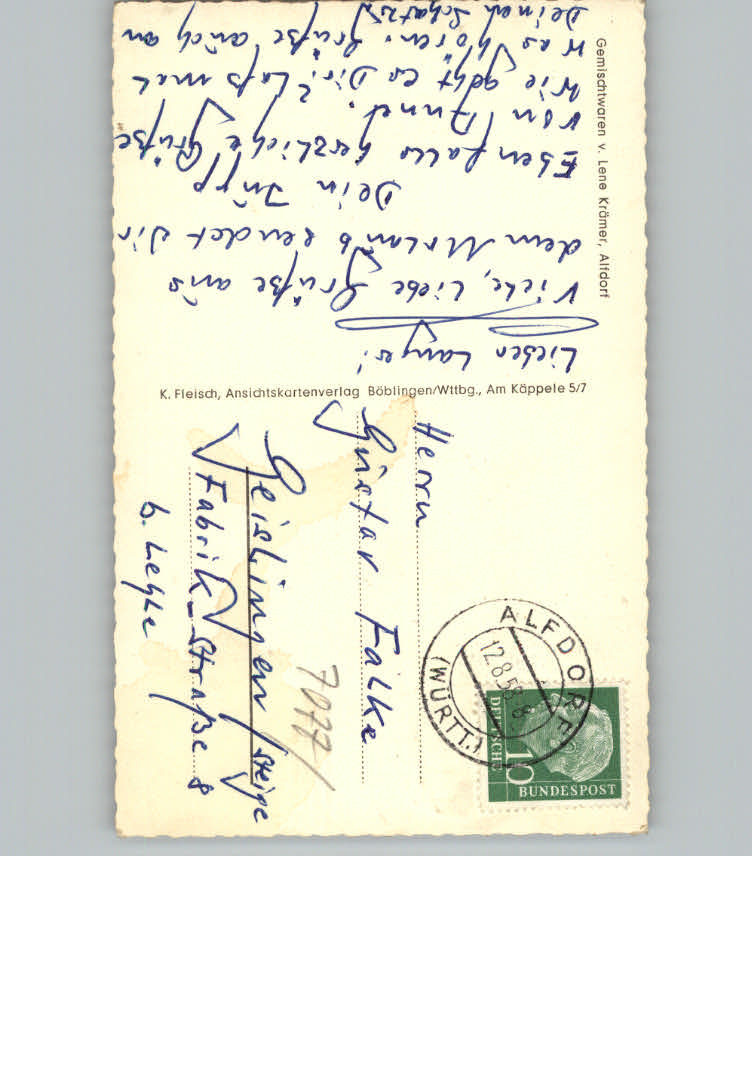 Lieber Langer!
Viele, liebe Grüße aus
dem Urlaub sendet Dir
Dein
Ebenfalls herzliche Grüße
von
Wie geht es Dir? Laß mal
was hören. Grüße auch an
Deinen Schatz
Gemischtwaren v. Lene Krämer, Alfdorf
K. Fleisch, Ansichtskartenverlag Böblingen/Wttbg., Am Käppele 5/7
ALFDORF
(WÜRTT.)
12.8.58
DEUTSCHE
BUNDESPOST
10
Herrn
Gustav Falke
Geislingen/Steige
Fabrik-Straße 8
b.
7077/